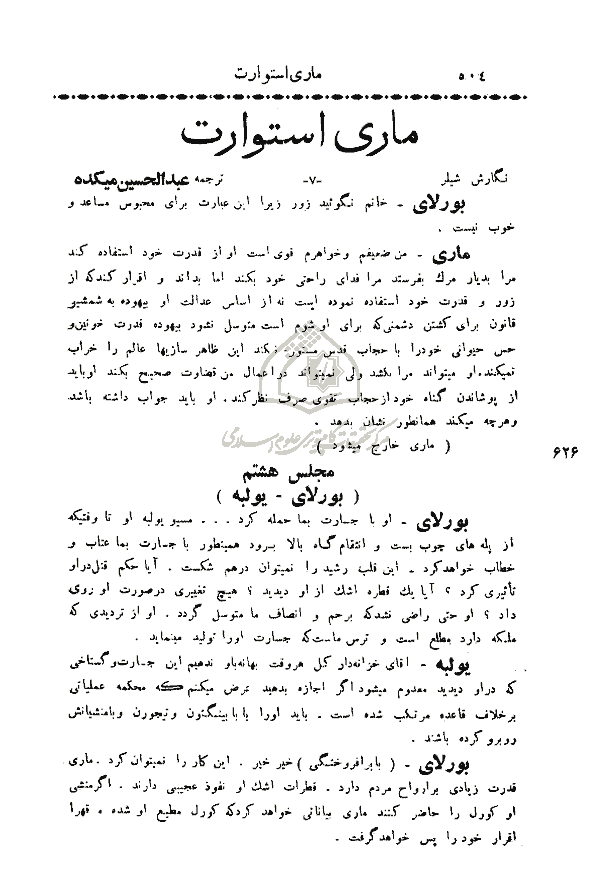 ماری استوارت ۵۰۴
ماری استوارت
نگارش شیلر -۷- ترجمه عبدالحسین میکده
بورلای - خانم نگوئید زور زیرا این عبارت برای محبوس مساعد و
خوب نیست .
ماری - من ضعیفم و خواهرم قوی است او از قدرت خود استفاده کند
مرا بدیار مرك بفرستد مرا فدای راحتی خود بکند اما بداند و اقرار کند که از
زور و قدرت خود استفاده نموده است نه از اساس عدالت او بیهوده به شمشیر
قانون برای کشتن دشمنی که برای او شوم است متوسل نشود بیهوده قدرت خونین و
حس حیوانی خود را با حجاب قدس مستور نکند این ظاهر سازیها عالم را خراب
نمیکند. او میتواند مرا بکشد ولی نمیتواند در اعمال من قضاوت صحیح بکند او باید
از پوشاندن گناه خود از حجاب تقوی صرف نظر کند . او باید جواب داشته باشد
و هرچه میکند همانطور نشان بدهد .
( ماری خارج میشود )
۶۲۶
مجلس هشتم
( بورلای - یولبه )
بورلای - او با جسارت بما حمله کرد . . . مسیو یولبه او تا وقتیکه
از پله های چوب بست و انتقام گاه بالا برود همینطور با جسارت بما عتاب و
خطاب خواهد کرد . این قلب رشید را نمیتوان درهم شکست . آیا حکم قتل در او
تأثیری کرد ؟ آیا یك قطره اشك از او دیدید ؟ هیچ تغییری در صورت او روی
داد ؟ او حتی راضی نشد که برحم و انصاف ما متوسل گردد . او از تردیدی که
ملکه دارد مطلع است و ترس ماست که جسارت او را تولید مینماید .
یولبه - آقای خزانه دار کل هروقت بهانه باو ندهیم این جسارت و گستاخی
که در او دیدید معدوم میشود اگر اجازه بدهید عرض میکنم که محکمه عملیاتی
برخلاف قاعده مرتکب شده است . باید او را با بابینگتون و تیچورن و با منشیانش
روبرو کرده باشند .
بورلای - ( با برافروختگی ) خیر خیر . این کار را نمیتوان کرد . ماری
قدرت زیادی بر ارواح مردم دارد . قطرات اشك او نفوذ عجیبی دارند . اگر منشی
او کورل را حاضر کنند ماری بیاناتی خواهد کرد که کورل مطیع او شده و قهرا
اقرار خود را پس خواهد گرفت .